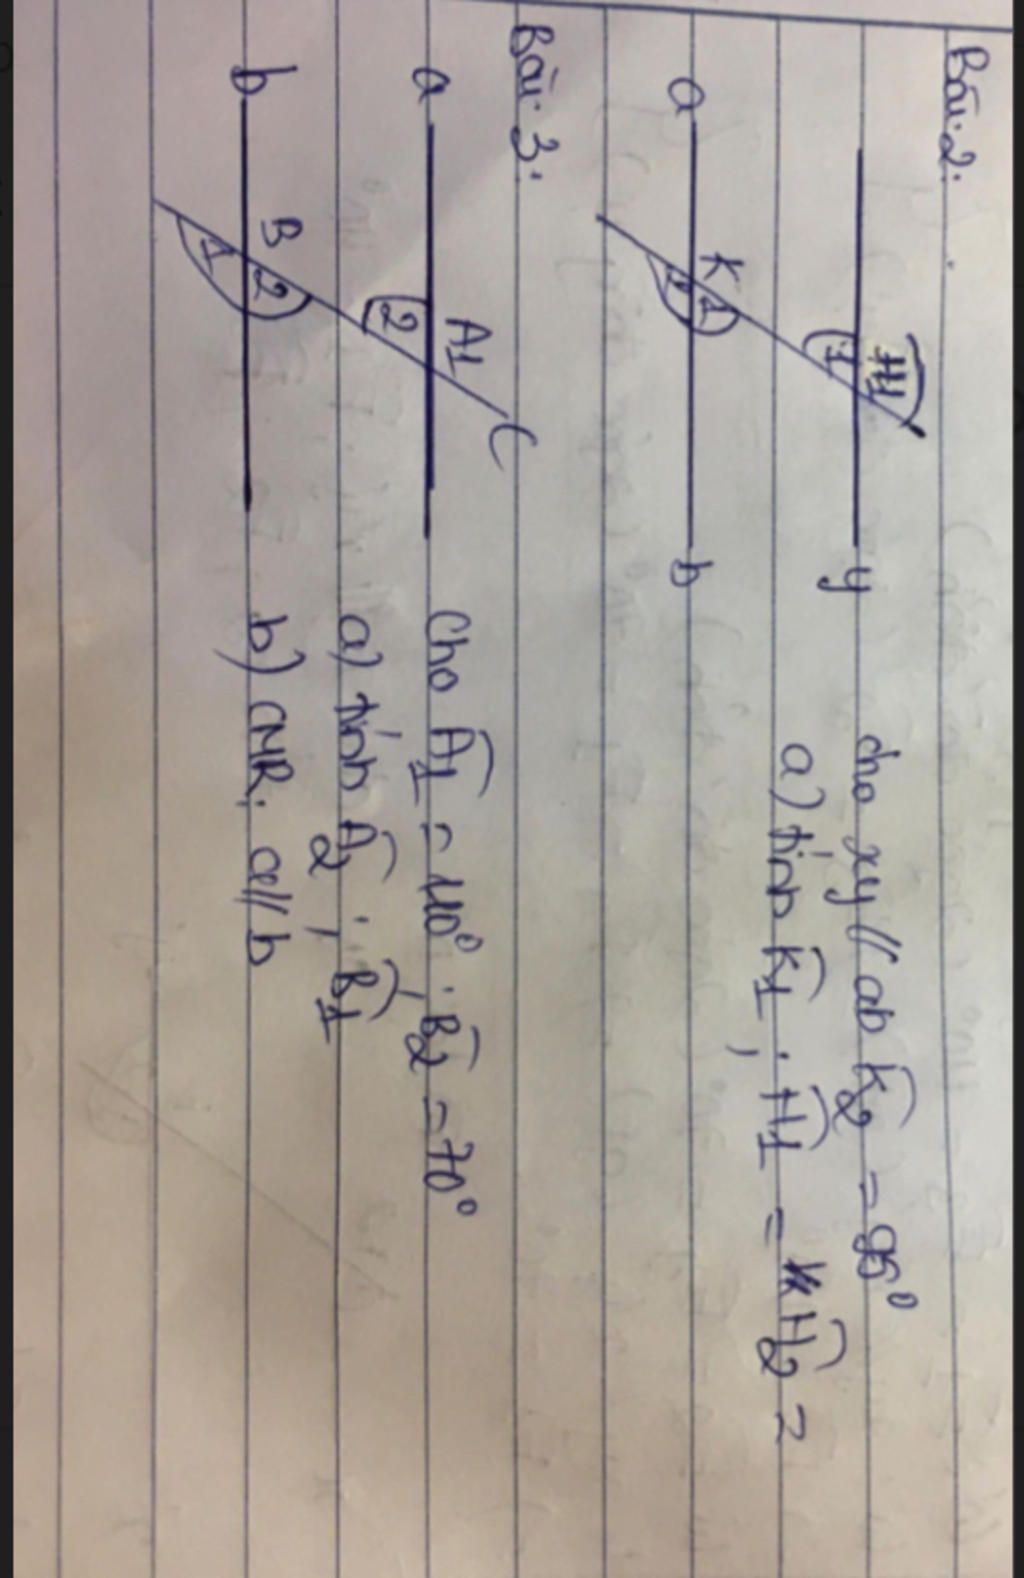 Bài 2:
y
cho xy // ab K̂2 = 95°
1
a) tính K̂1 ; Ĥ1 = Ĥ2 = ?
a K 1 b
Bài 3:
C
a A1
2
Cho Â1 = 110° ; B̂2 = 70°
a) tính Â2 ; B̂1
b B 2
1
b) CMR: a // b